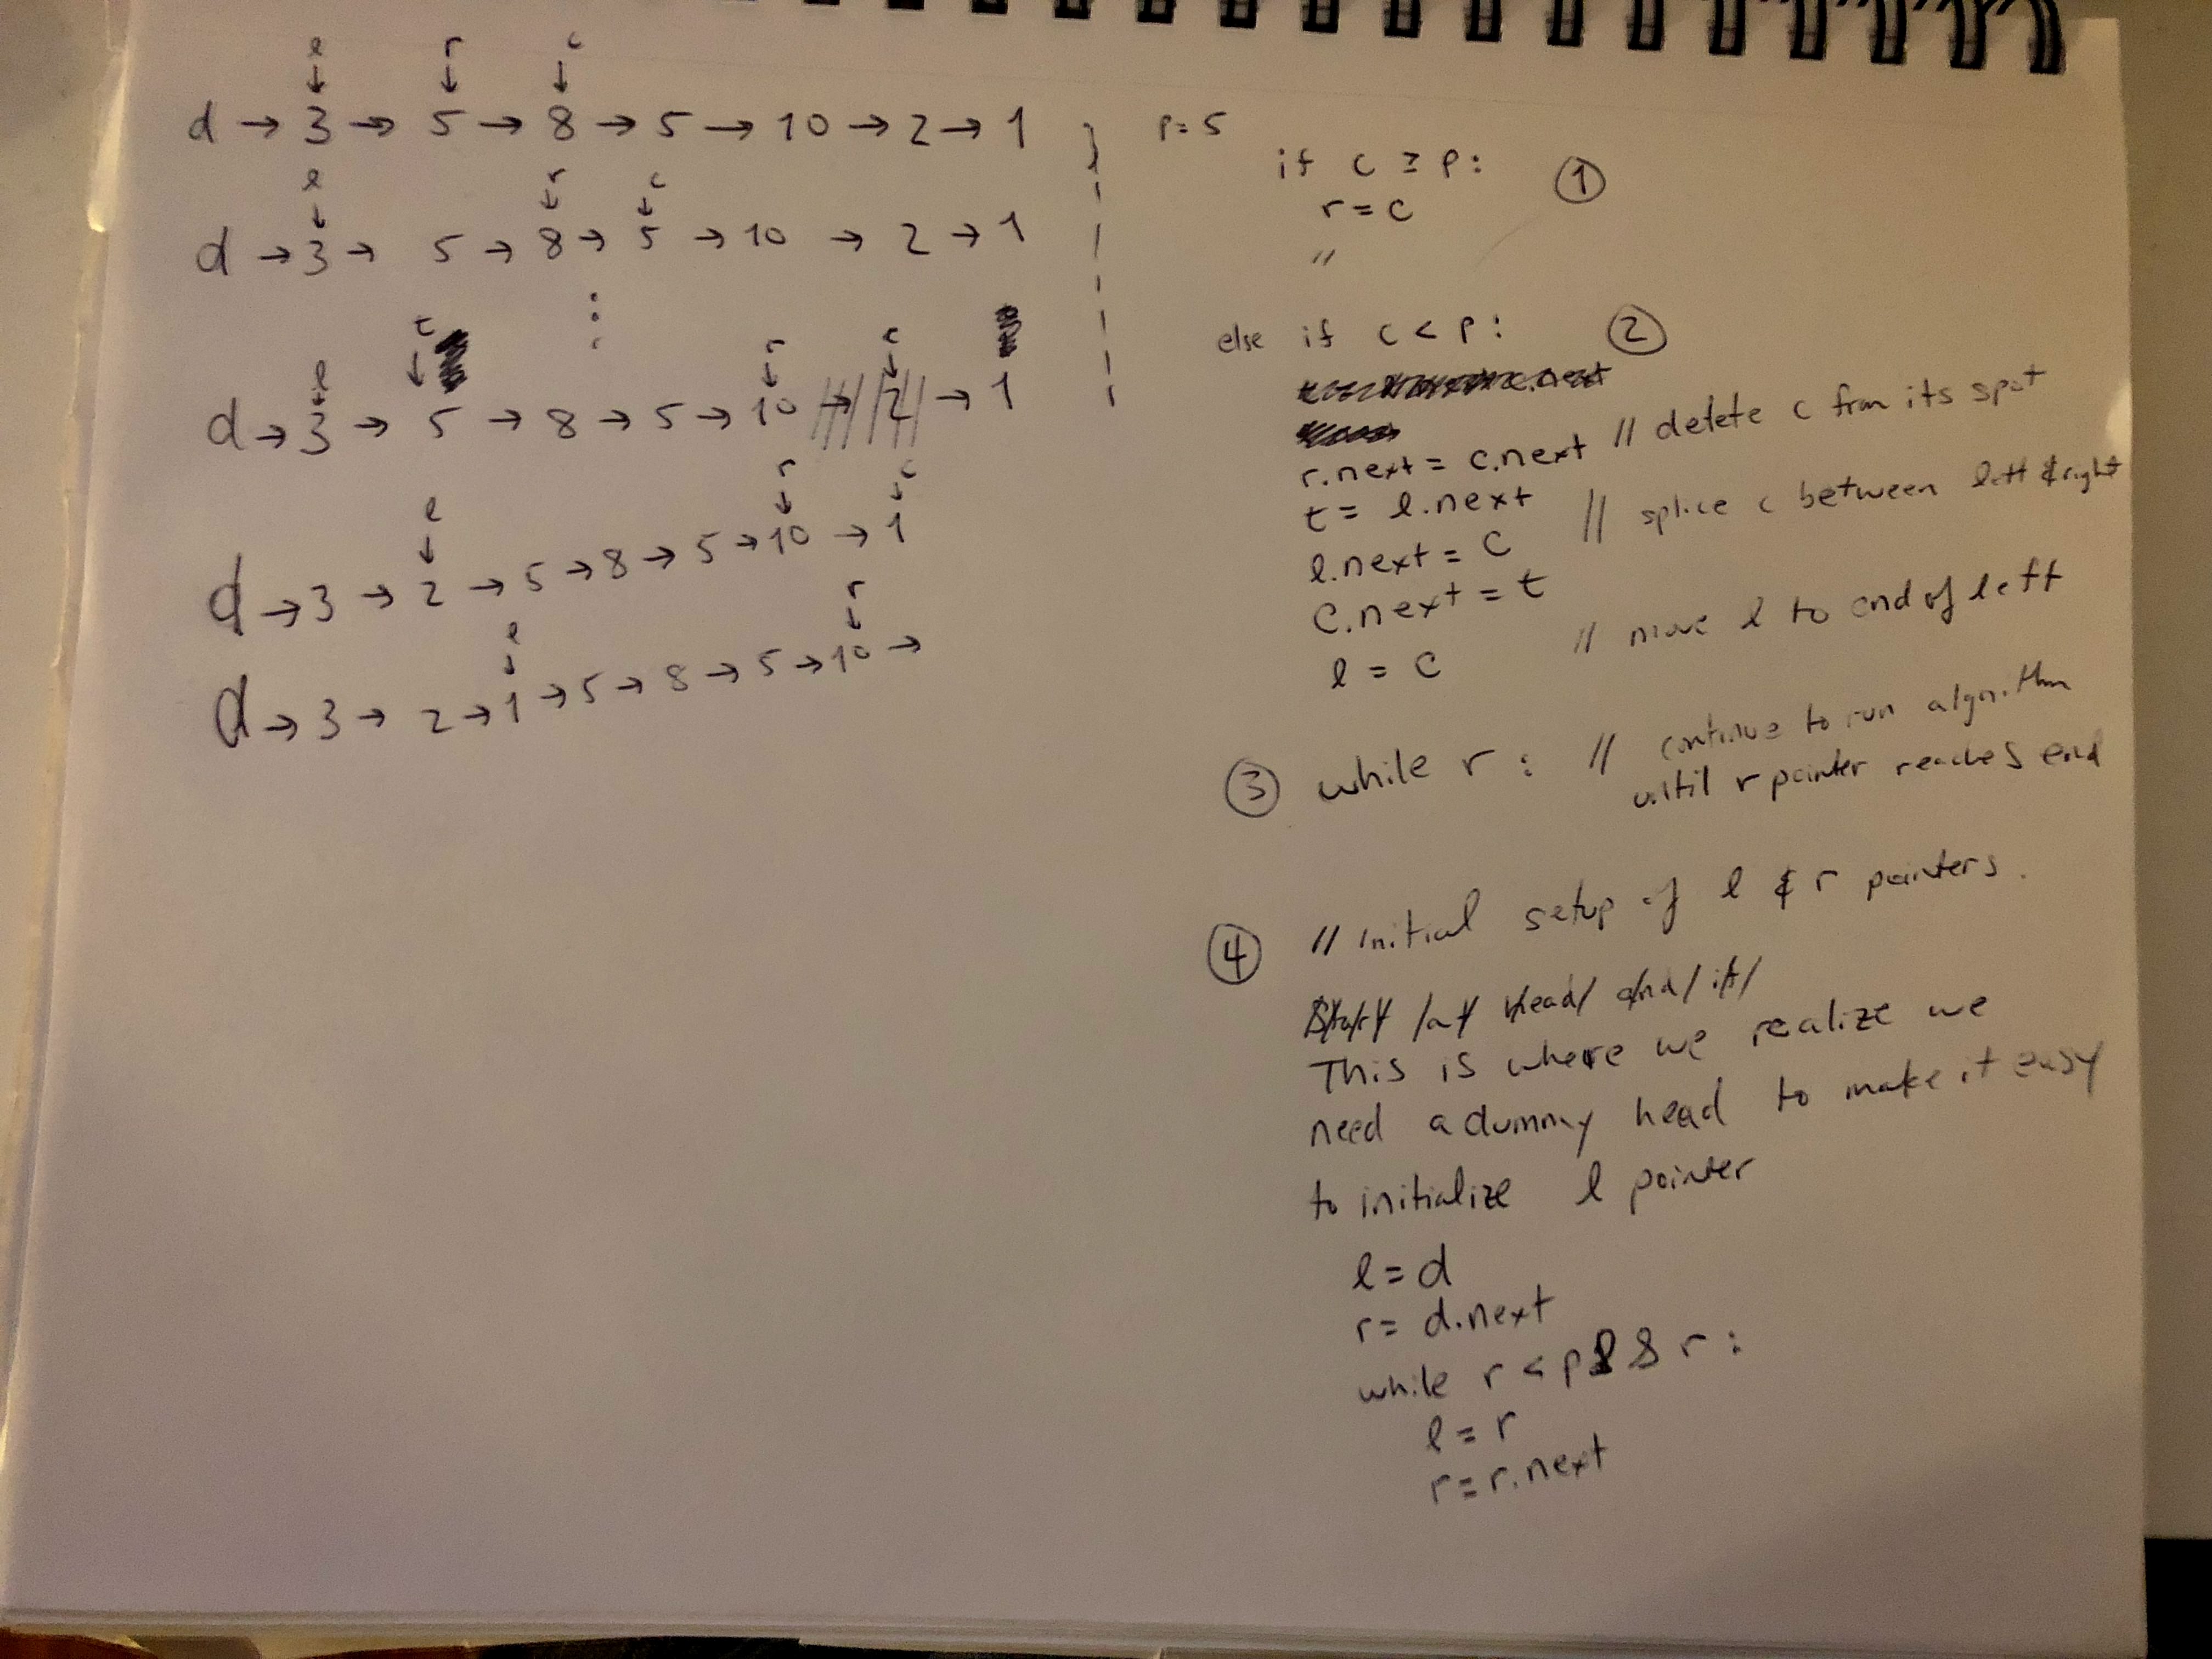 l r c
↓ ↓ ↓
d → 3 → 5 → 8 → 5 → 10 → 2 → 1
l r c
↓ ↓ ↓
d → 3 → 5 → 8 → 5 → 10 → 2 → 1
t l r c
↓ ↓ ↓ ↓
d → 3 → 5 → 8 → 5 → 10 → 2 → 1
l r c
↓ ↓ ↓
d → 3 → 2 → 5 → 8 → 5 → 10 → 1
l r
↓ ↓
d → 3 → 2 → 1 → 5 → 8 → 5 → 10 →
p = 5
if c ≥ p: ①
r = c
//
else if c < p: ②
r.next = c.next // delete c from its spot
t = l.next // splice c between left & right
l.next = c
c.next = t
l = c // move l to end of left
③ while r : // continue to run algorithm
until r pointer reaches end
④ // Initial setup of l & r pointers.
Start at head and if
This is where we realize we
need a dummy head to make it easy
to initialize l pointer
l = d
r = d.next
while r < p && r :
l = r
r = r.next